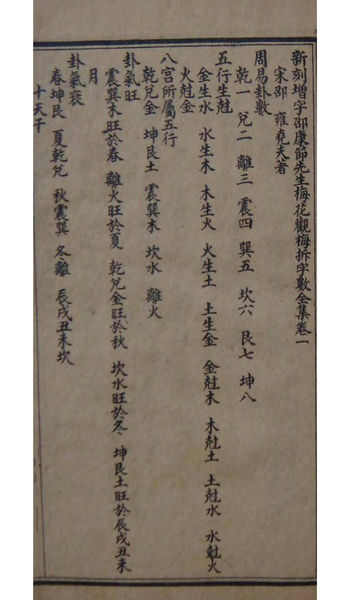 新刻增字邵康節先生梅花觀梅拆字數全集卷一
宋邵 雍堯夫著
周易卦數
乾一 兌二 離三 震四 巽五 坎六 艮七 坤八
五行生尅
金生水 水生木 木生火 火生土 土生金 金尅木 木尅土 土尅水 水尅火
火尅金
八宮所屬五行
乾兌金 坤艮土 震巽木 坎水 離火
卦氣旺
震巽木旺於春 離火旺於夏 乾兌金旺於秋 坎水旺於冬 坤艮土旺於辰戌丑未
月
卦氣衰
春坤艮 夏乾兌 秋震巽 冬離 辰戌丑未坎
十天干